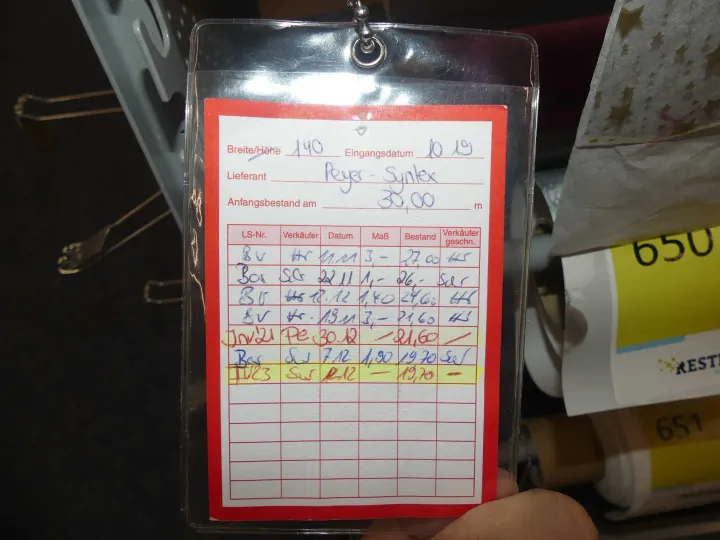 Breite/Höhe 140 Eingangsdatum 10.19
Lieferant Peyer-Syntex
Anfangsbestand am 30,00 m
LS-Nr. Verkäufer Datum Maß Bestand Verkäufer geschn.
BV 11.11 3,- 27,00
Bar 22.11 1,- 26,-
12.12 1,40 24,60
BV 19.11 3,- 21,60
Inv21 Pe 30.12 — 21,60 —
Bar 7.12 1,90 19,70
12.12 — 19,70 —
650
RESTE
651